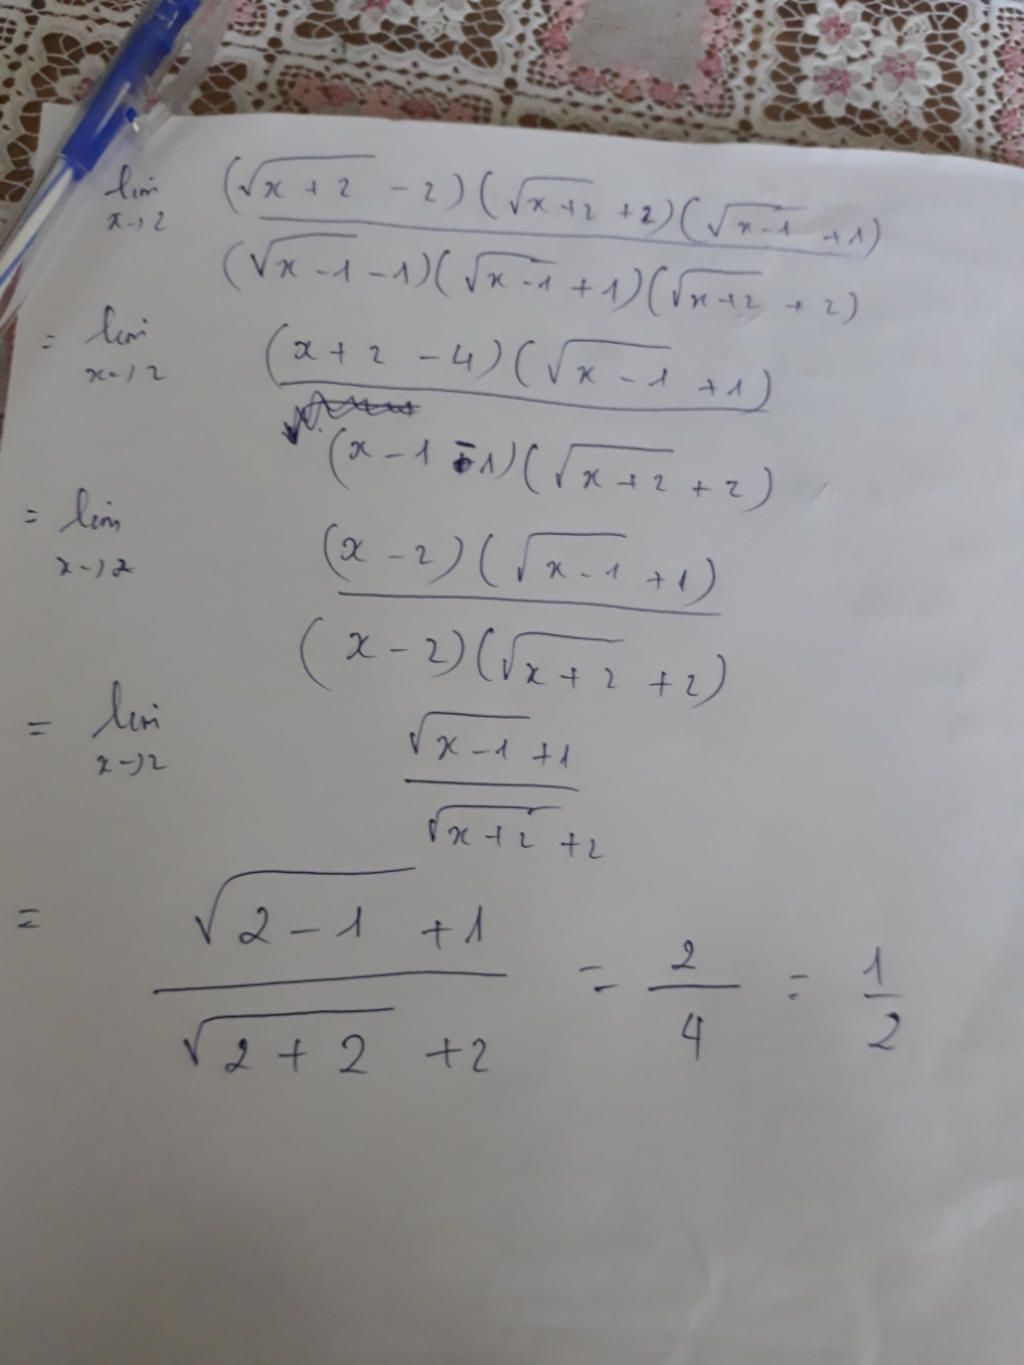 lim x→2 (√x+2 - 2)(√x+2 + 2)(√x-1 + 1)
(√x-1 - 1)(√x-1 + 1)(√x+2 + 2)
= lim x→2 (x+2 - 4)(√x-1 + 1)
(x-1 - 1)(√x+2 + 2)
= lim x→2 (x-2)(√x-1 + 1)
(x-2)(√x+2 + 2)
= lim x→2 √x-1 + 1
√x+2 + 2
= √2-1 + 1 = 2 = 1
√2+2 + 2 4 2